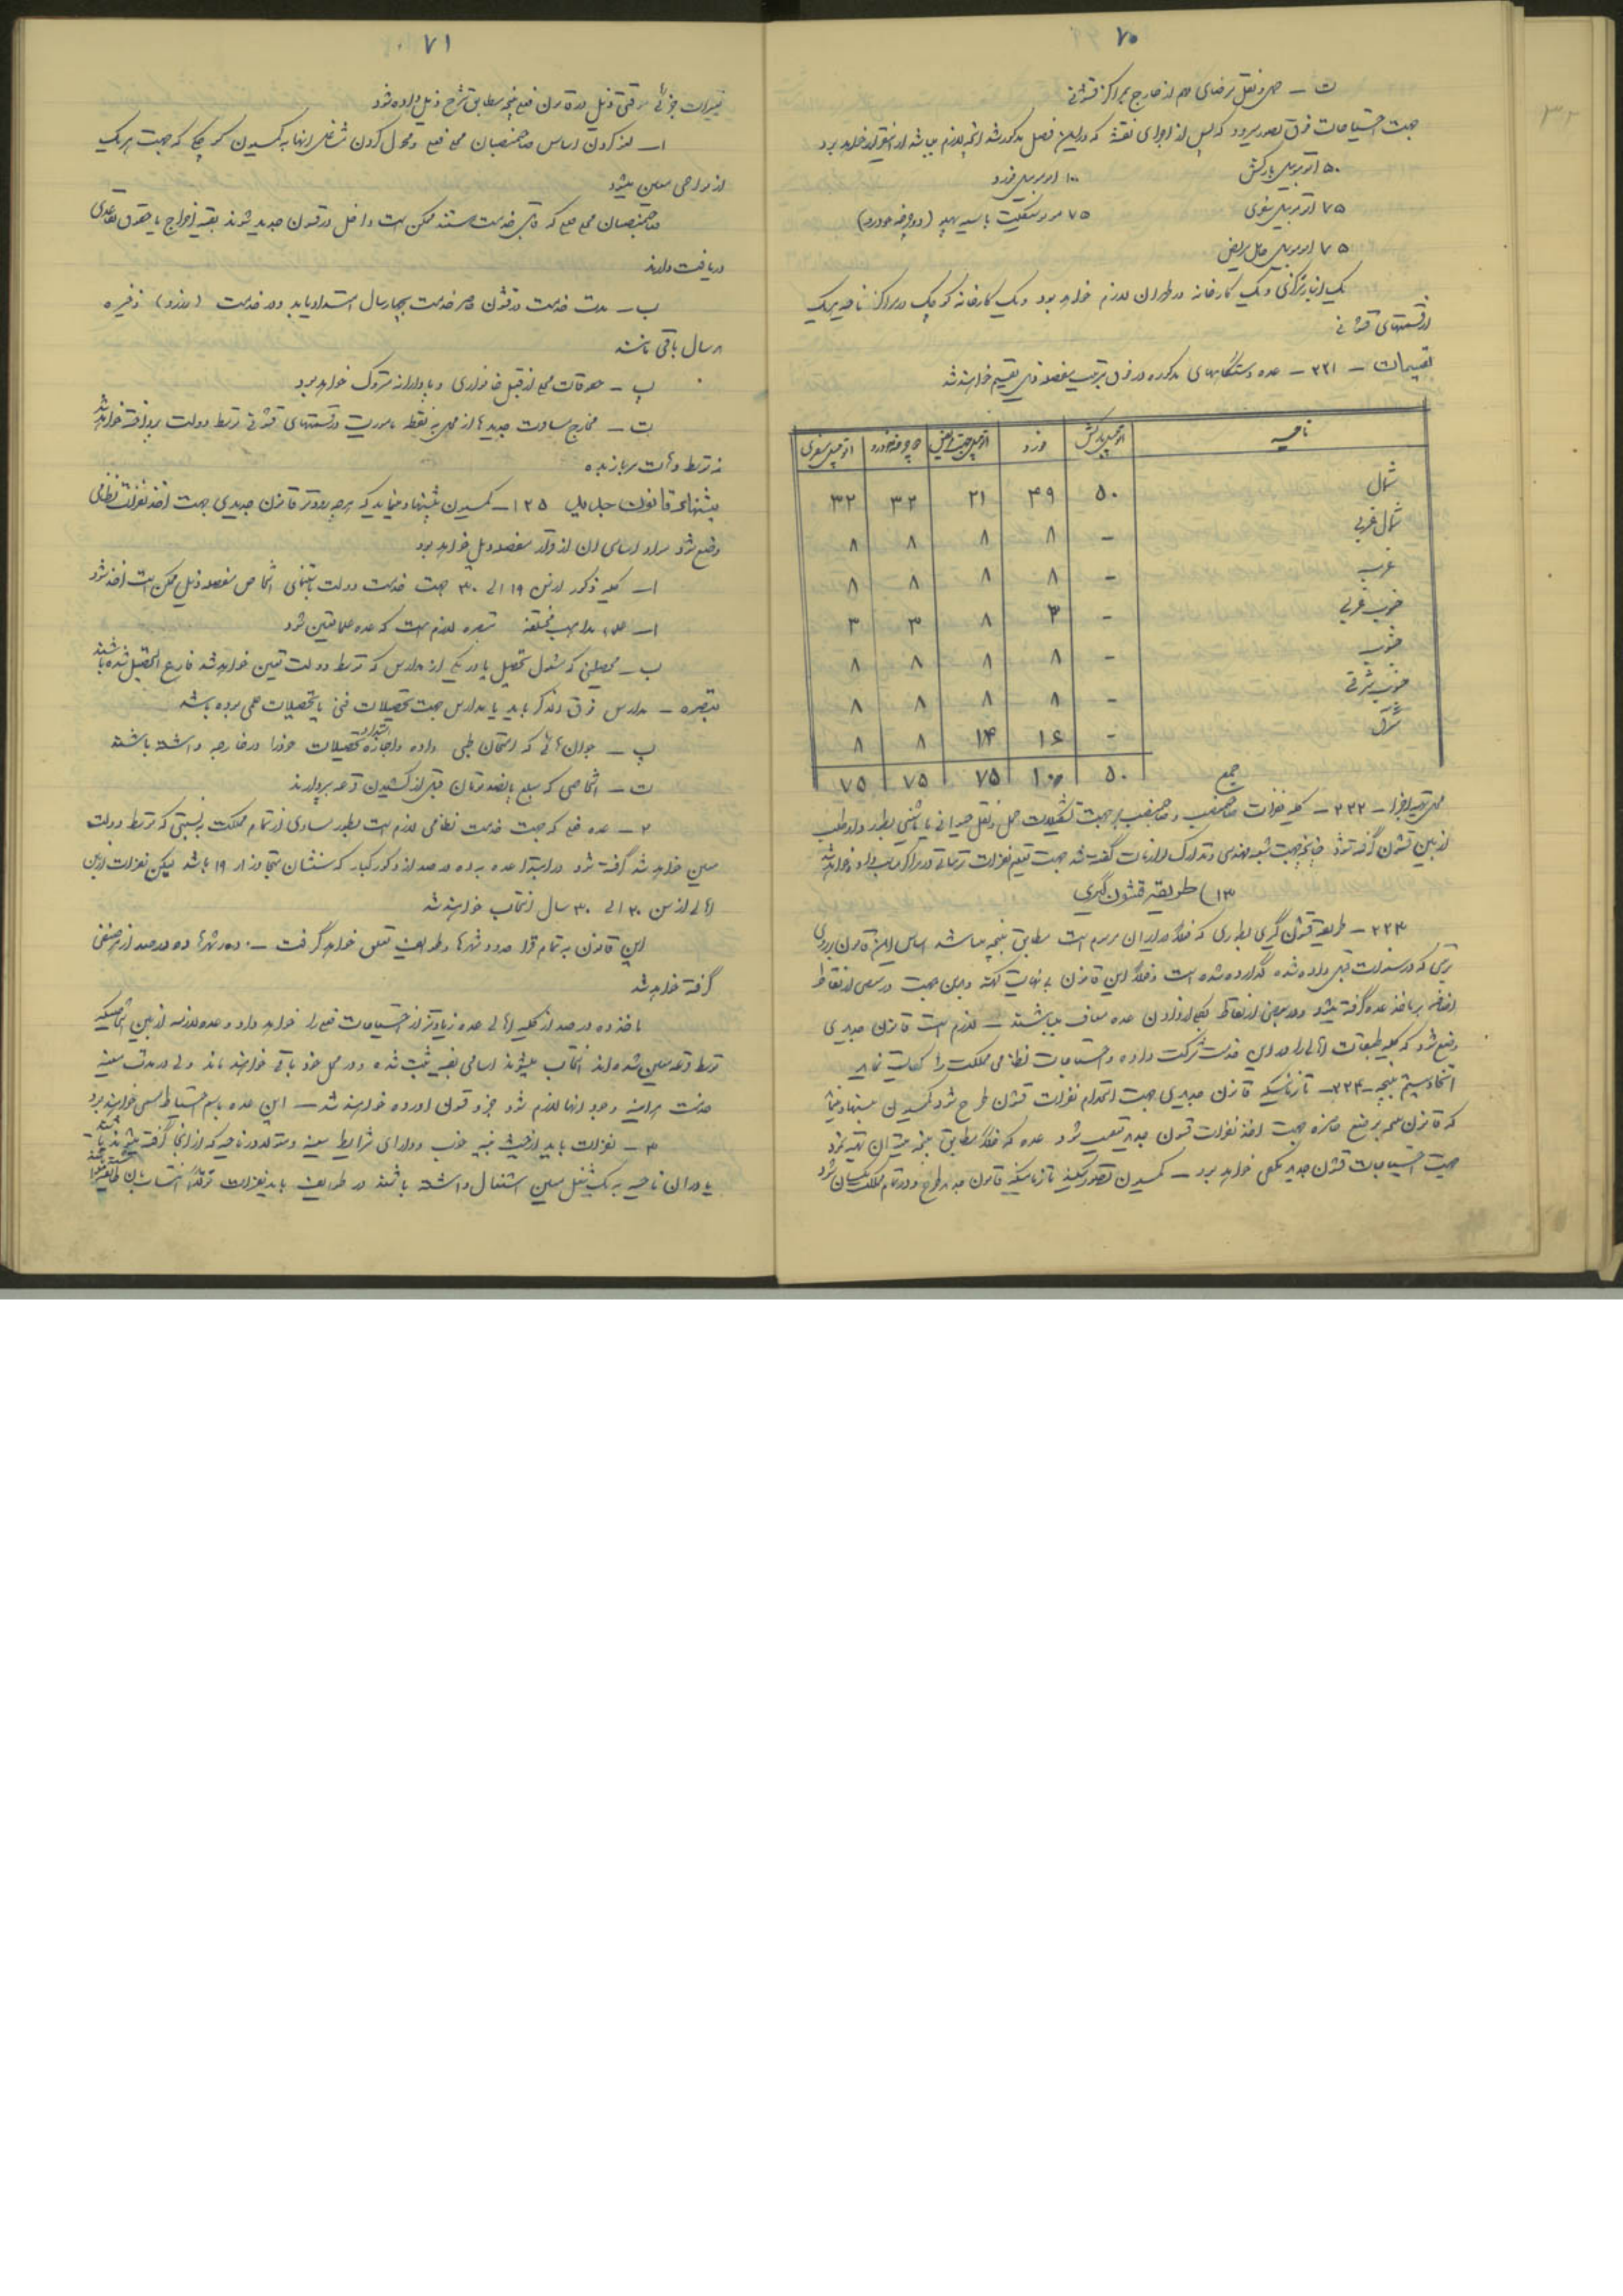 ۷۰
ت – حمل و نقل مرضای هم از خارج بمراکز قشونی
جهت احتیاجات فوق تصور میرود که پس از اجرای نقشه که در این فصل مذکور شد آنچه لازم میباشد از اینقرار خواهد بود
۵۰ اتومبیل بارکش ۱۰۰ اتومبیل فورد
۷۵ اتومبیل سفری ۷۵ موتورسیکلت با سید پهلو (دوچرخه خودرو)
۷۵ اتومبیل حامل مریض
یک انبار مرکزی و یک کارخانه در طهران لازم خواهد بود و یک کارخانه کوچک در مراکز ناحیه هر یک
از قسمتهای قشونی
تقسیمات – ۲۲۱ – عده دستگاههای مذکوره در فوق بترتیب مفصله ذیل تقسیم خواهند شد
ناحیه اتومبیل بارکش فورد اتومبیل جهت مریض چرخه خودرو اتومبیل سفری
شمال ۵۰ ۴۹ ۲۱ ۳۲ ۳۲
شمال غربی – ۸ ۸ ۸ ۸
غرب – ۸ ۸ ۸ ۸
جنوب غربی – ۳ ۸ ۳ ۳
جنوب – ۸ ۸ ۸ ۸
جنوب شرقی – ۸ ۸ ۸ ۸
شرق – ۱۶ ۱۴ ۸ ۸
جمع ۵۰ ۱۰۰ ۷۵ ۷۵ ۷۵
محل تهیه اجزا – ۲۲۲ – کلیه نفرات صاحبمنصب و جهت تشکیلات حمل و نقل حیوانی یا ماشینی بطور داوطلب
از بین قشون گرفته شود چنانچه جهت شعبه مهندسی و تدارک لوازمات گفته شد جهت تعلیم نفرات ترتیباتی در مراکز مناسب داده خواهد شد
۱۳) طریقه قشون گیری
۲۲۳ – طریقه قشون گیری بطوری که فعلا در ایران مرسوم است مطابق بنیچه میباشد اساس این قانون بر روی
ترتیبی که در سنوات قبل داده شده گذارده شده است و فعلا این قانون بی نهایت کهنه و بدین جهت در بعضی از نقاط
اضافه بر ماخذ عده گرفته میشود و در بعضی از نقاط بکلی از دادن عده معاف میباشند – لازم است قانون جدیدی
وضع شود که کلیه طبقات اهالی را در این خدمت شرکت داده و احتیاجات نظامی مملکت را کفایت نماید
اتخاذ سیستم بنیچه – ۲۲۴ – تا زمانیکه قانون جدیدی جهت استخدام نفرات قشون طرح شود کمیسیون پیشنهاد مینماید
که قانون بنیچه بوضع حاضره جهت اخذ نفرات قشون جدید تعقیب شود عده که فعلا مطابق بنیچه میتوان تهیه نمود
جهت احتیاجات قشون جدید مکفی خواهد بود – کمیسیون تصور میکند تا زمانیکه قانون جدید طرح و در تمام مملکت یکسان شود
۷۱
تغییرات جزئی موقتی ذیل در قانون فعلی بنیچه مطابق شرح ذیل داده شود
۱ – لغو کردن اساس صاحبمنصبان محلی فعلی و محول کردن شغل آنها به کمیسیون کوچکی که جهت هر یک
از نواحی معین میشود
صاحبمنصبان محلی فعلی که قابل خدمت هستند ممکن است داخل در قشون جدید شوند بقیه اخراج یا حقوق تقاعدی
دریافت دارند
ب – مدت خدمت در قشون حاضر خدمت بچهار سال امتداد یابد و در خدمت (رزرو) ذخیره
۸ سال باقی باشند
پ – حقوقات محلی از قبیل خانواری و پادارانه متروک خواهد بود
ت – مخارج مسافرت جدیدها از محل به نقطه مأموریت در قسمتهای قشونی توسط دولت پرداخته خواهد شد
نه توسط دهات سرباز بده
پیشنهاد قانون جدید ۱۲۵ – کمیسیون پیشنهاد مینماید که هرچه زودتر قانون جدیدی جهت اخذ نفرات نظامی
وضع شود مواد اساسی آن از قرار مفصله ذیل خواهد بود
۱ – کلیه ذکور از سن ۱۹ الی ۳۰ جهت خدمت دولت باستثنای اشخاص مفصله ذیل ممکن است اخذ شود
۱ – علماء مذاهب مختلفه تبصره لازم است که عده علما تعیین شود
ب – محصلینی که مشغول تحصیل یا در یکی از مدارس که توسط دولت تعیین خواهد شد فارغ التحصیل شده باشند
تبصره – مدارس فوق الذکر باید یا مدارس جهت تحصیلات فنی یا تحصیلات علمی بوده باشد
پ – جوان هائی که امتحان طبی داده و اجازه امتداد تحصیلات خود را در خارجه داشته باشند
ت – اشخاصی که مبلغ پانصد تومان قبل از کشیدن قرعه بپردازند
۲ – عده فعلی که جهت خدمت نظامی لازم است بطور مساوی از تمام مملکت به نسبتی که توسط دولت
معین خواهد شد گرفته شود در ابتدا عده بوده درصد از ذکور کبار که سنشان متجاوز از ۱۹ باشد لیکن نفرات از بین
اهالی از سن ۲۰ الی ۳۰ سال انتخاب خواهند شد
این قانون به تمام قراء و حدود شهرها و طوایف تعلق خواهد گرفت – در شهرها ده درصد از هر صنفی
گرفته خواهد شد
ماخذ ده درصد از کلیه اهالی عده زیادتر از احتیاجات فعلی را خواهد داد و عده لازمه از بین اشخاصیکه
توسط قرعه معین شده‌اند انتخاب میشوند اسامی بقیه ثبت شده و در محل خود باقی خواهند ماند ولی در مدت معینه
خدمت هر آینه وجود آنها لازم شود جزو قشون آورده خواهند شد – این عده باسم احتیاط مسمی خواهند بود
۳ – نفرات باید از حیث بنیه خوب و دارای شرایط معینه و متولد در ناحیه که از آنجا گرفته میشوند باشند
یا در آن ناحیه به یک شغل معین اشتغال داشته باشند در طوایف باید نفرات انتساب بآن طایفه داشته باشند